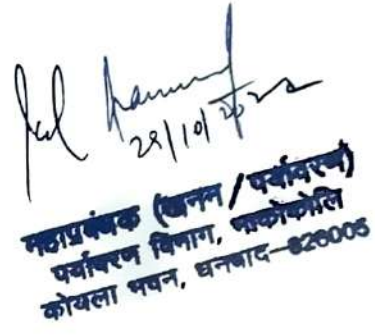 29/10/2022
महाप्रबंधक (खनन / पर्यावरण)
पर्यावरण विभाग, भाकोकोलि
कोयला भवन, धनबाद-826005